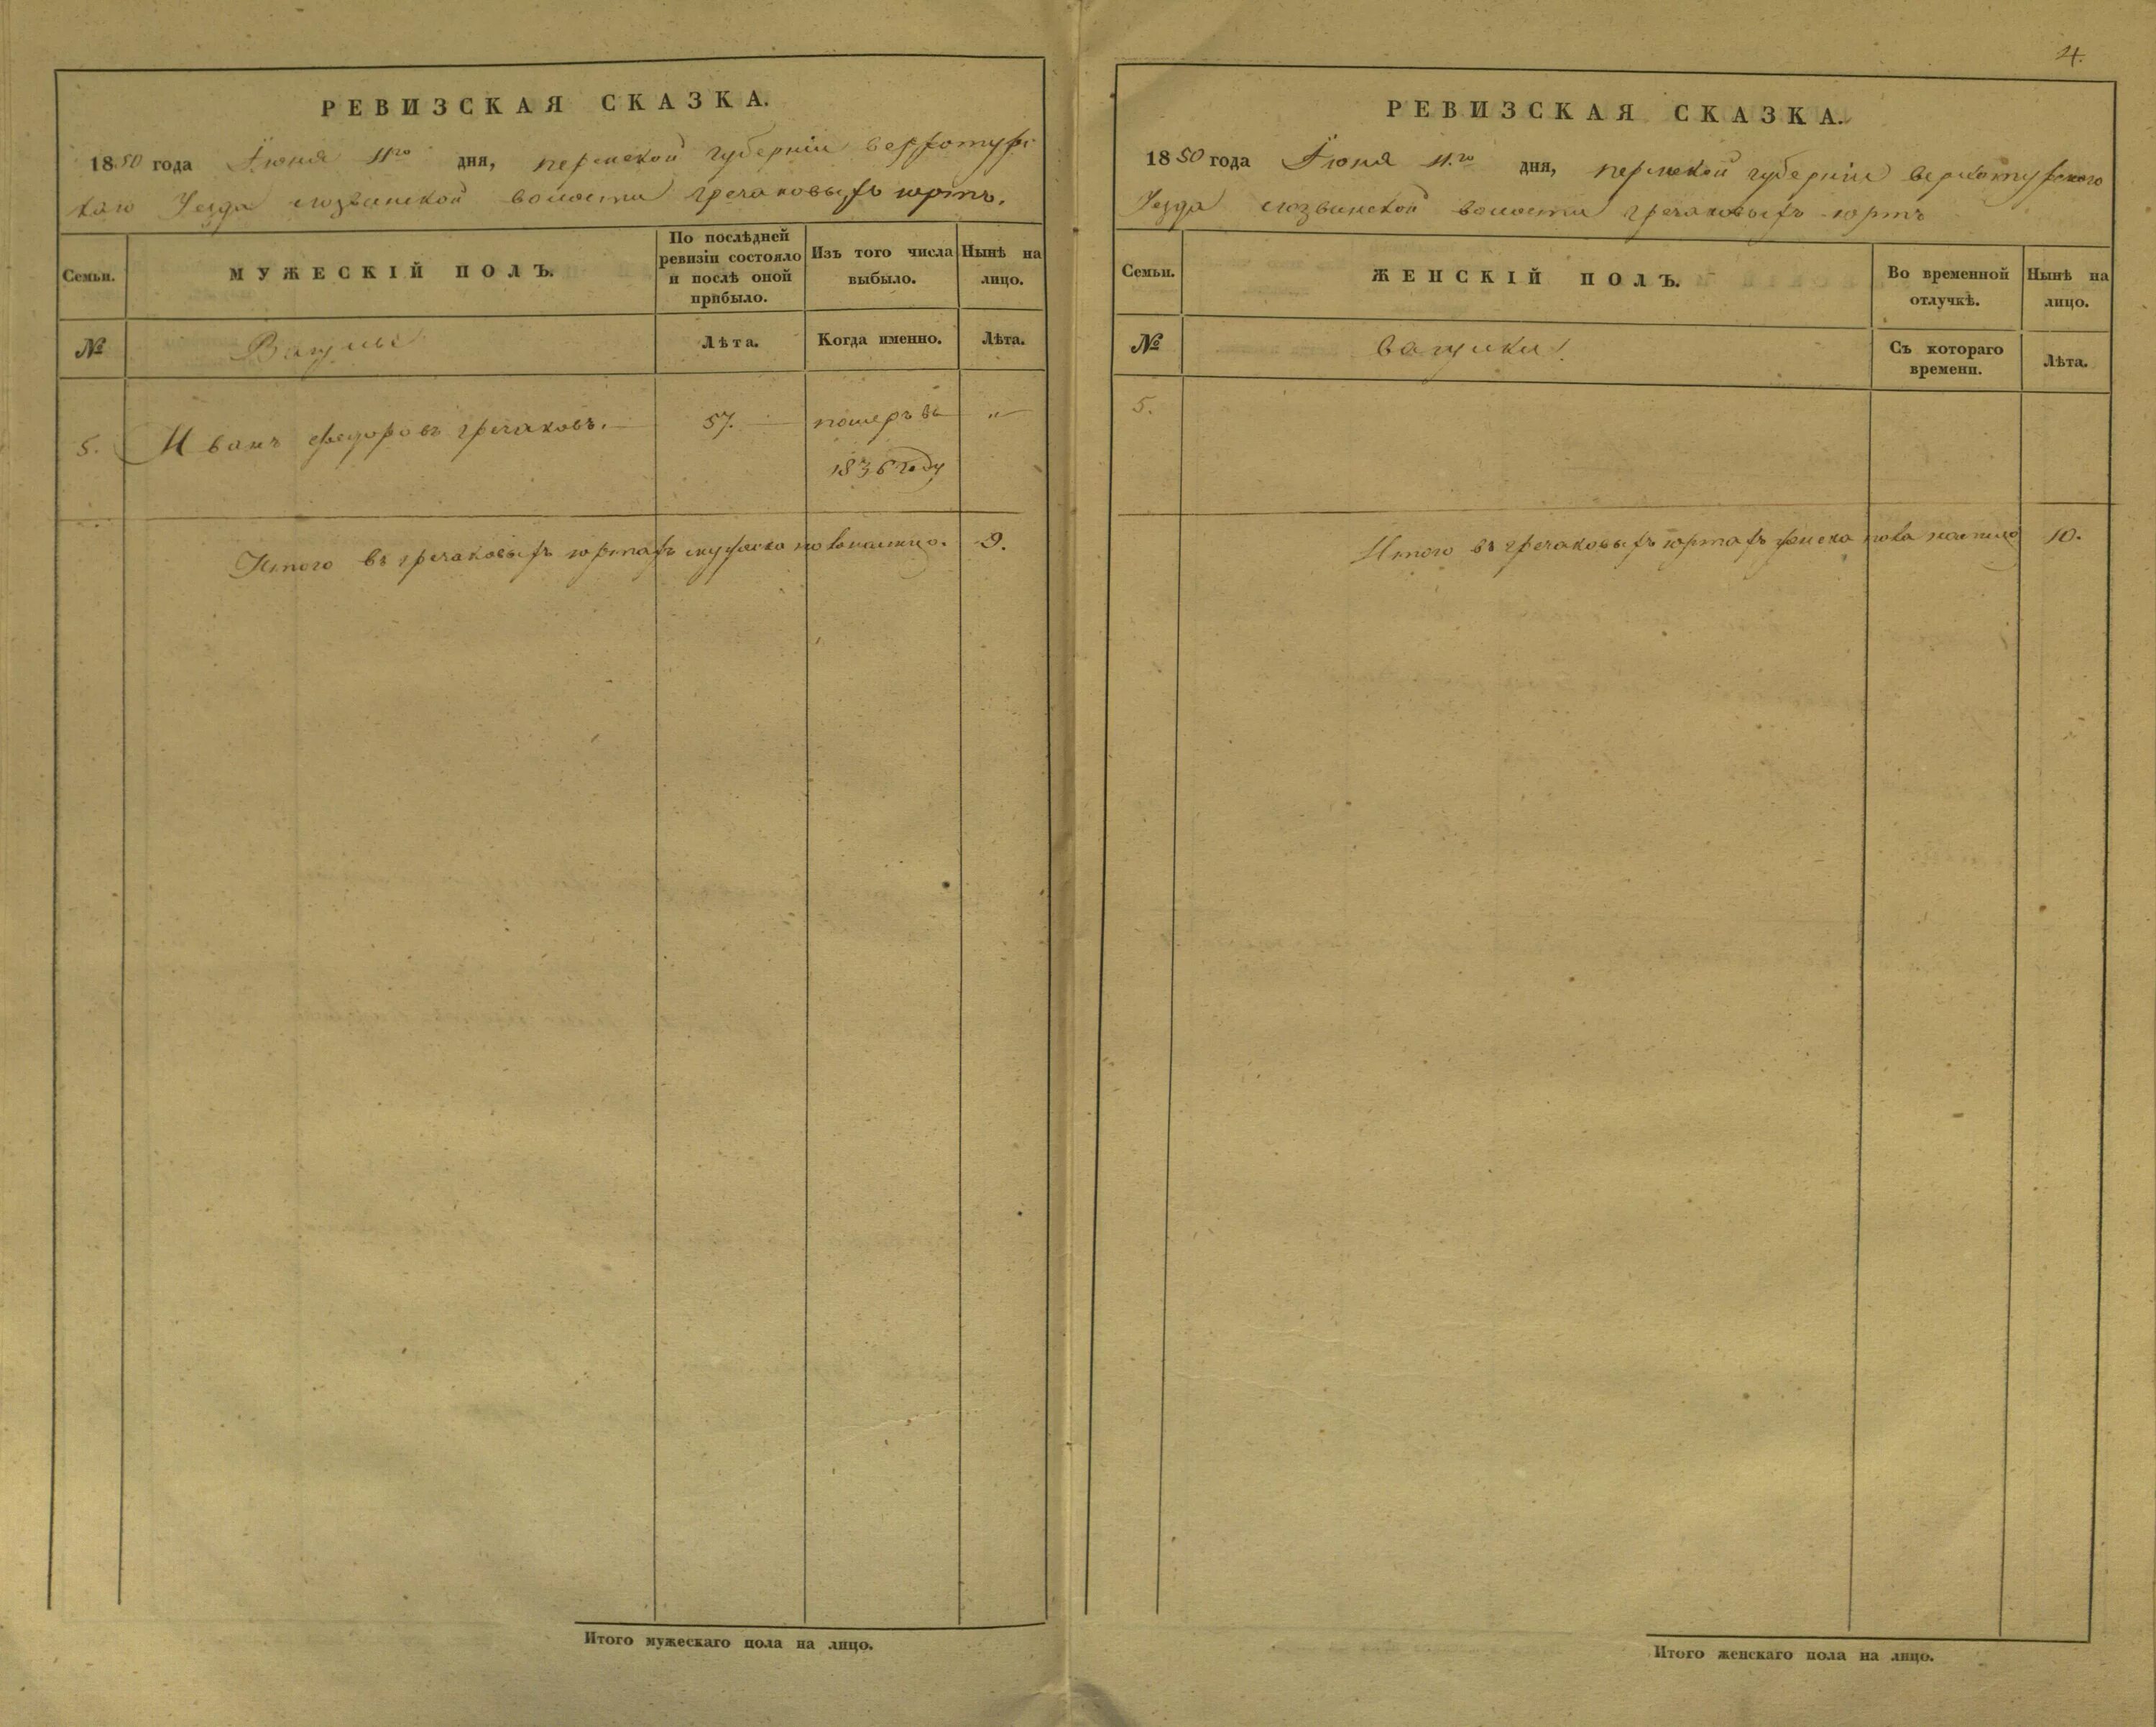 РЕВИЗСКАЯ СКАЗКА.
1850 года Іюня 11го дня, пермской губерніи верхотурс
каго Уезда лозвинской волости гречаковыхъ юртъ.
Семьи.
МУЖЕСКІЙ ПОЛЪ.
По послѣдней
ревизіи состояло
и послѣ оной
прибыло.
Изъ того числа
выбыло.
Нынѣ на
лицо.
№
Вагулы
Лѣта.
Когда именно.
Лѣта.
5. Иванъ Федоровъ гречаковъ. 57. померъ въ "
1836 году
Итого въ гречаковыхъ юртахъ мужеска пола налицо. 9.
Итого мужескаго пола на лицо.
4.
РЕВИЗСКАЯ СКАЗКА.
1850 года Іюня 11.го дня, пермской губерніи верхотурскаго
Уезда лозвинской волости гречаковыхъ юртъ
Семьи.
ЖЕНСКІЙ ПОЛЪ.
Во временной
отлучкѣ.
Нынѣ на
лицо.
№
вагулки
Съ котораго
времени.
Лѣта.
5.
Итого въ гречаковыхъ юртахъ женска пола налицо 10.
Итого женскаго пола на лицо.